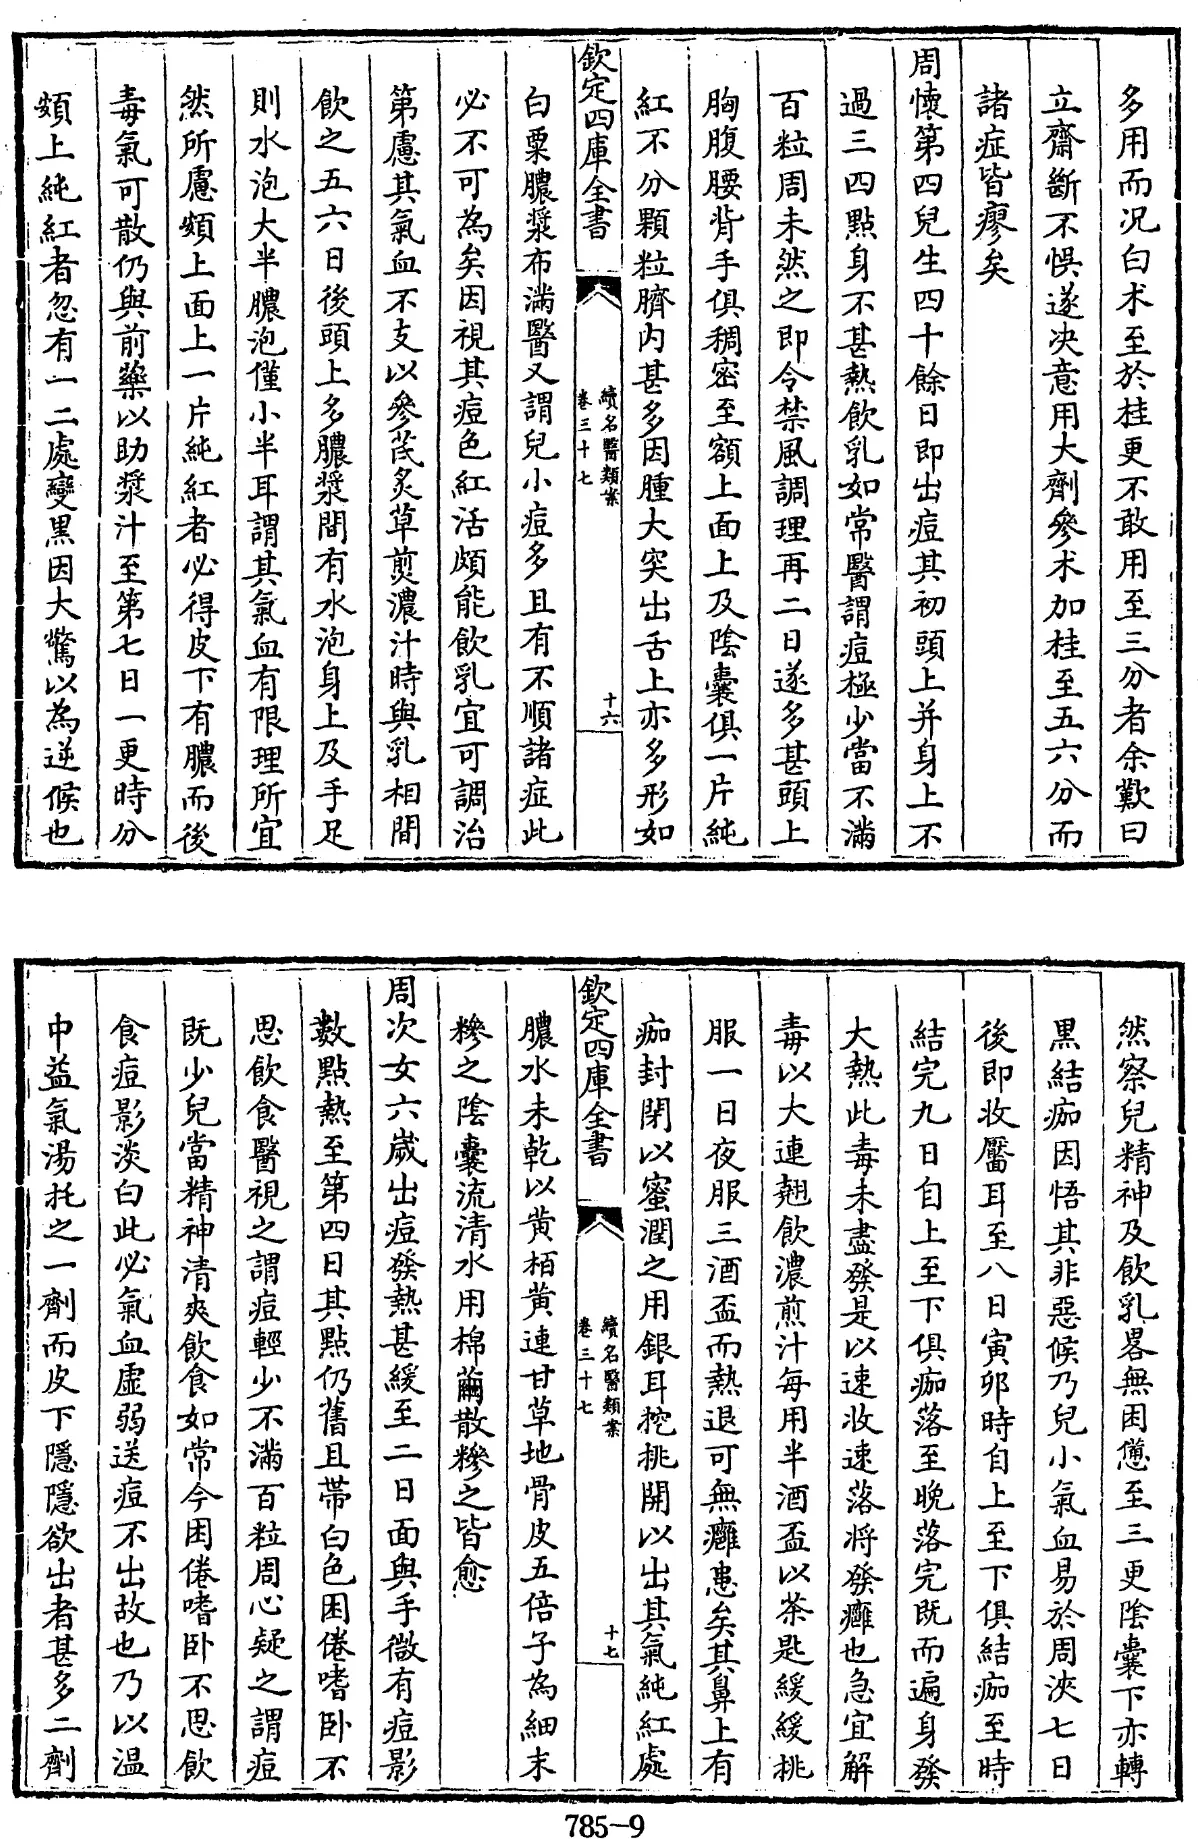 多用而况白术至於桂更不敢用至三分者余歎曰
立齋斷不悞遂决意用大劑參术加桂至五六分而
諸症皆瘳矣
周懷第四兒生四十餘日即出痘其初頭上并身上不
過三四點身不甚熱飲乳如常醫謂痘極少當不滿
百粒周未然之即令禁風調理再二日遂多甚頭上
胸腹腰背手俱稠密至額上面上及陰囊俱一片純
紅不分顆粒臍内甚多因腫大突出舌上亦多形如
欽定四庫全書
續名醫類案
卷三十七
十六
白粟膿漿布滿醫又謂兒小痘多且有不順諸症此
必不可為矣因視其痘色紅活頗能飲乳宜可調治
第慮其氣血不支以參芪炙草煎濃汁時與乳相間
飲之五六日後頭上多膿漿間有水泡身上及手足
則水泡大半膿泡僅小半耳謂其氣血有限理所宜
然所慮頰上面上一片純紅者必得皮下有膿而後
毒氣可散仍與前藥以助漿汁至第七日一更時分
頰上純紅者忽有一二處變黑因大驚以為逆候也
然察兒精神及飲乳畧無困憊至三更陰囊下亦轉
黑結痂因悟其非惡候乃兒小氣血易於周浹七日
後即收靨耳至八日寅卯時自上至下俱結痂至時
結完九日自上至下俱痂落至晚落完既而遍身發
大熱此毒未盡發是以速收速落将發癰也急宜解
毒以大連翹飲濃煎汁每用半酒盃以茶匙緩緩挑
服一日夜服三酒盃而熱退可無癰患矣其鼻上有
痂封閉以蜜潤之用銀耳挖挑開以出其氣純紅處
欽定四庫全書
續名醫類案
卷三十七
十七
膿水未乾以黄栢黄連甘草地骨皮五倍子為細末
糝之陰囊流清水用棉繭散糝之皆愈
周次女六歲出痘發熱甚緩至二日面與手微有痘影
數點熱至第四日其點仍舊且帶白色困倦嗜卧不
思飲食醫視之謂痘輕少不滿百粒周心疑之謂痘
既少兒當精神清爽飲食如常今困倦嗜卧不思飲
食痘影淡白此必氣血虛弱送痘不出故也乃以温
中益氣湯托之一劑而皮下隱隱欲出者甚多二劑
785-9